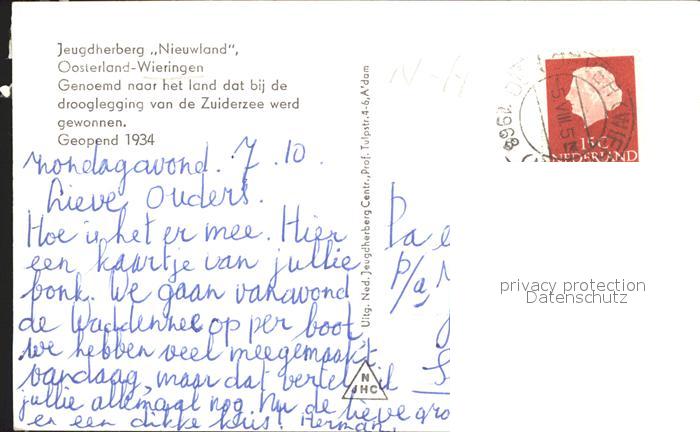 Jeugdherberg „Nieuwland",
Oosterland-Wieringen
Genoemd naar het land dat bij de
drooglegging van de Zuiderzee werd
gewonnen.
Geopend 1934
Mondagavond. 7.10.
Lieve Ouders.
Hoe is het er mee. Hier
een kaartje van jullie
bonk. We gaan vanavond
de Waddenzee op per boot
we hebben veel meegemaakt
vandaag, maar dat vertel ik
jullie allemaal nog. Nu de lieve gro
en een dikke kus! Herman.
Uitg. Ned. Jeugdherberg Centr., Prof. Tulpstr. 4-6, A'dam
N
JHC
Pa e
p/a,
15c
NEDERLAND
1968
privacy protection
Datenschutz